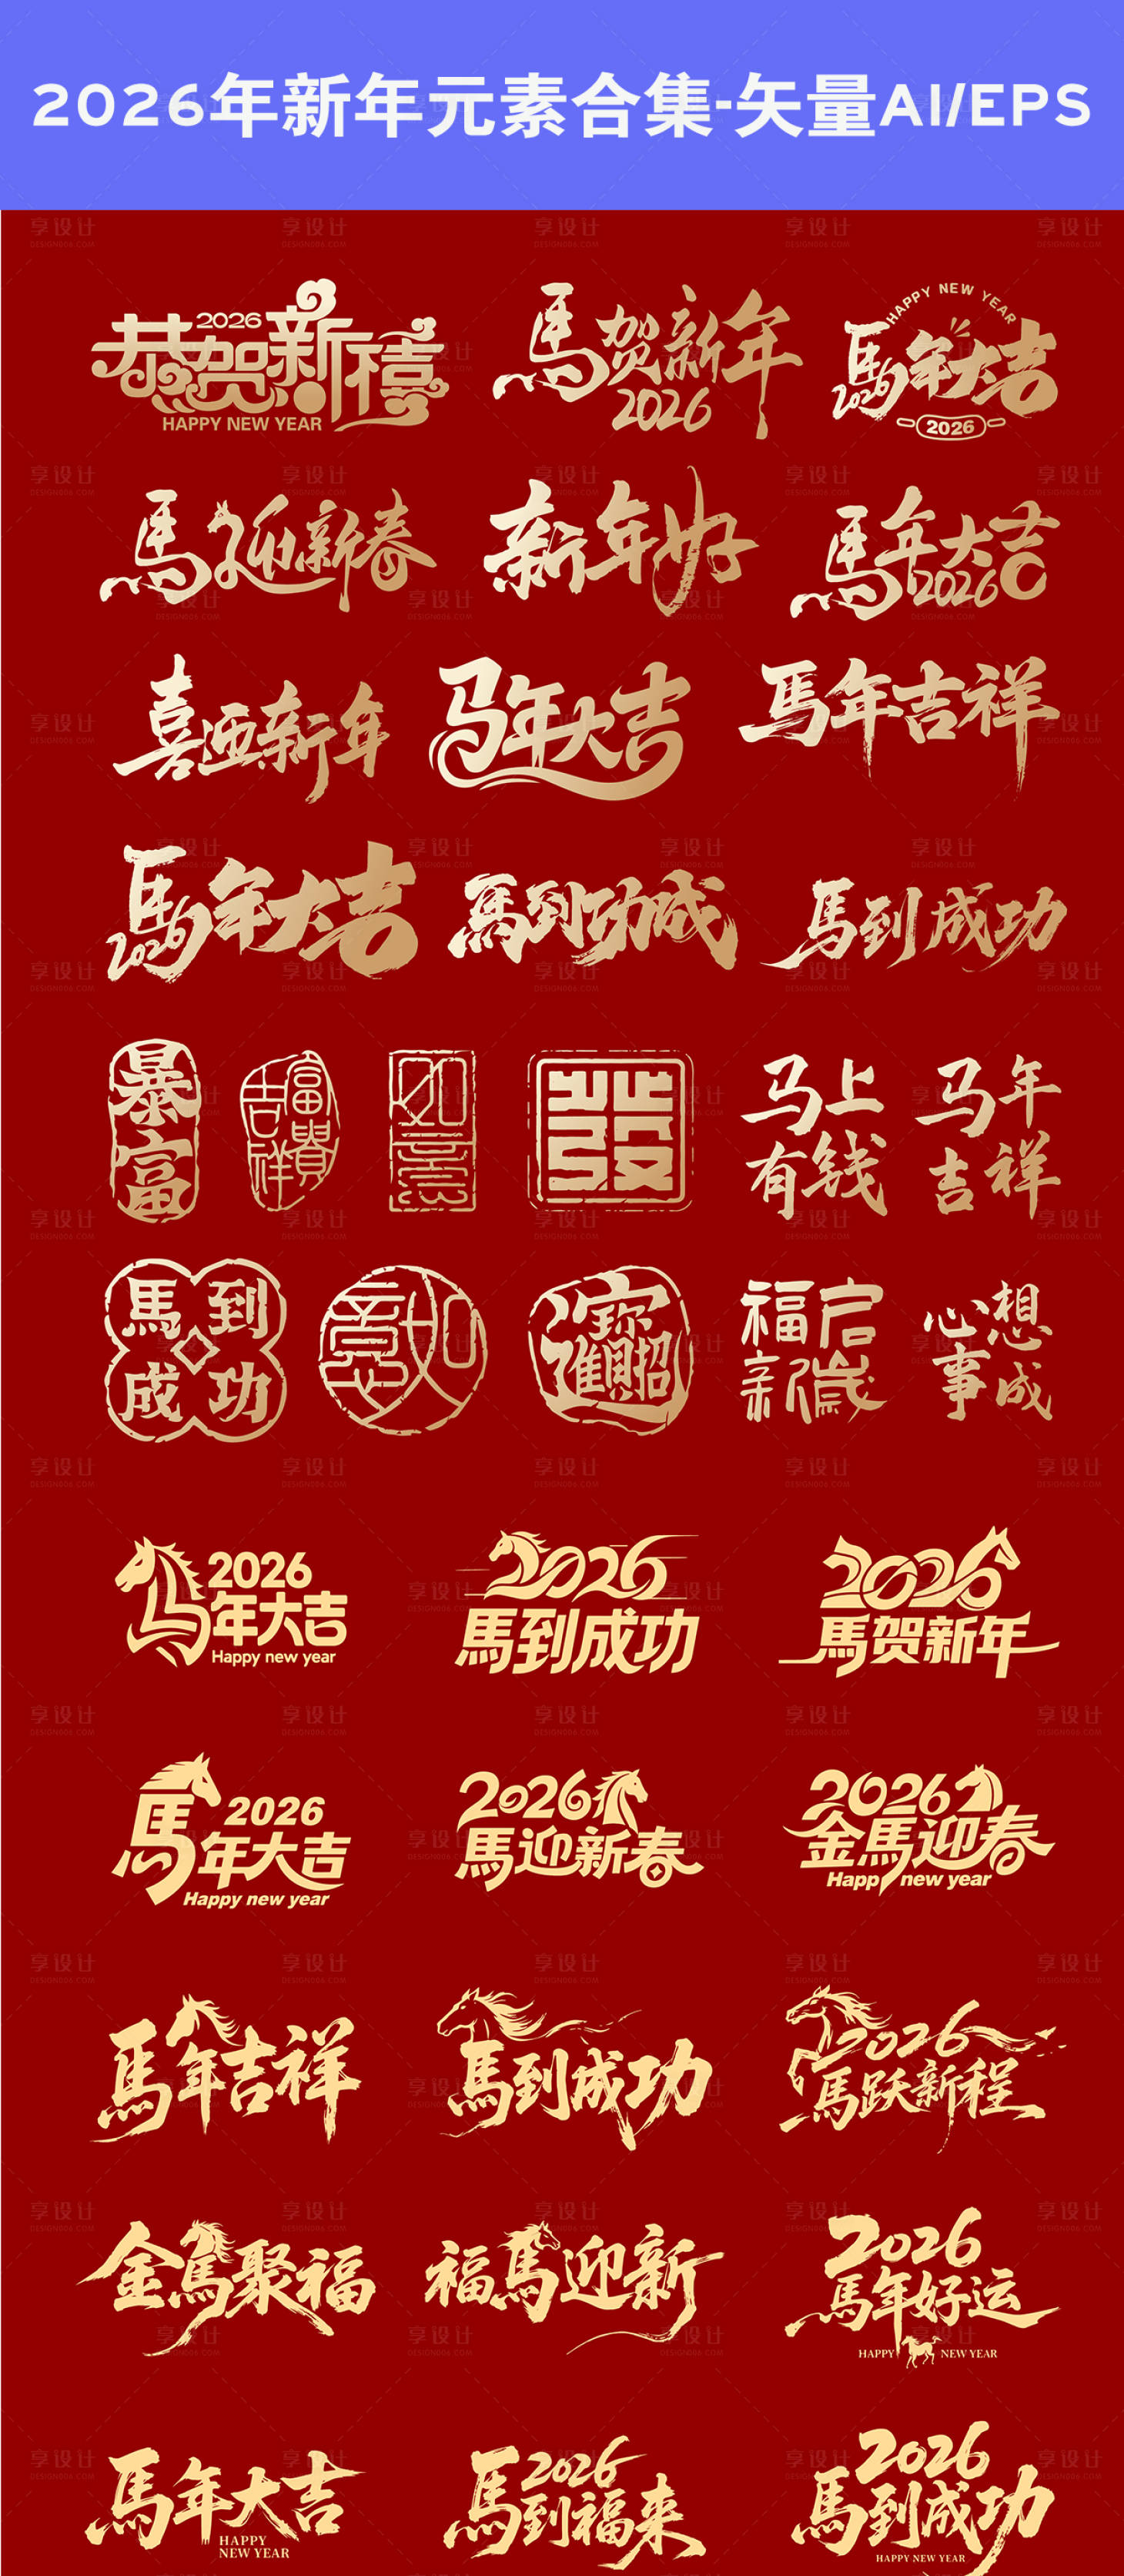 2026年新年元素合集-矢量AI/EPS
恭贺新禧
2026
HAPPY NEW YEAR
馬贺新年
2026
HAPPY NEW YEAR
馬年大吉
2026
2026
馬迎新春
新年好
馬年大吉
2026
喜迎新年
马年大吉
馬年吉祥
馬年大吉
2026
馬到功成
馬到成功
暴富
富貴
吉祥
如意
發
马上
有钱
马年
吉祥
馬到
成功
如意
招財
進寶
福启
新歲
心想
事成
2026
马年大吉
Happy new year
2026
馬到成功
2026
馬贺新年
2026
馬年大吉
Happy new year
2026
馬迎新春
2026
金馬迎春
Happy new year
馬年吉祥
馬到成功
2026
馬跃新程
金馬聚福
福馬迎新
2026
馬年好运
HAPPY NEW YEAR
馬年大吉
HAPPY
NEW YEAR
2026
馬到福来
2026
馬到成功
HAPPY NEW YEAR
享设计
DESIGN006.COM